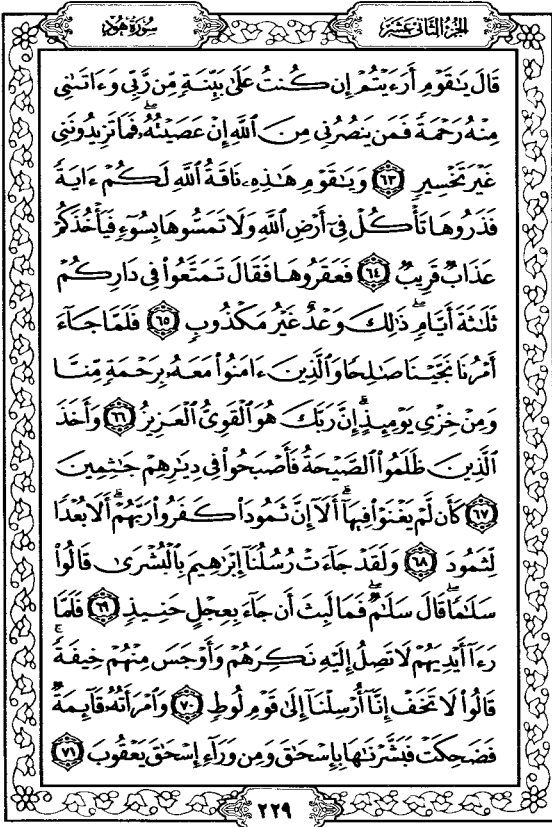 سُورَةُ هُودٍ
الجُزْءُ الثَّانِي عَشَرَ
قَالَ يَٰقَوْمِ أَرَءَيْتُمْ إِن كُنتُ عَلَىٰ بَيِّنَةٍ مِّن رَّبِّي وَءَاتَىٰنِي
مِنْهُ رَحْمَةً فَمَن يَنصُرُنِي مِنَ ٱللَّهِ إِنْ عَصَيْتُهُۥۖ فَمَا تَزِيدُونَنِي
غَيْرَ تَخْسِيرٍ ٦٣ وَيَٰقَوْمِ هَٰذِهِۦ نَاقَةُ ٱللَّهِ لَكُمْ ءَايَةً
فَذَرُوهَا تَأْكُلْ فِىٓ أَرْضِ ٱللَّهِ وَلَا تَمَسُّوهَا بِسُوٓءٍ فَيَأْخُذَكُمْ
عَذَابٌ قَرِيبٌ ٦٤ فَعَقَرُوهَا فَقَالَ تَمَتَّعُوا۟ فِى دَارِكُمْ
ثَلَٰثَةَ أَيَّامٍۖ ذَٰلِكَ وَعْدٌ غَيْرُ مَكْذُوبٍ ٦٥ فَلَمَّا جَآءَ
أَمْرُنَا نَجَّيْنَا صَٰلِحًا وَٱلَّذِينَ ءَامَنُوا۟ مَعَهُۥ بِرَحْمَةٍ مِّنَّا
وَمِنْ خِزْىِ يَوْمِئِذٍۗ إِنَّ رَبَّكَ هُوَ ٱلْقَوِىُّ ٱلْعَزِيزُ ٦٦ وَأَخَذَ
ٱلَّذِينَ ظَلَمُوا۟ ٱلصَّيْحَةُ فَأَصْبَحُوا۟ فِى دِيَٰرِهِمْ جَٰثِمِينَ
٦٧ كَأَن لَّمْ يَغْنَوْا۟ فِيهَآۗ أَلَآ إِنَّ ثَمُودَا۟ كَفَرُوا۟ رَبَّهُمْۗ أَلَا بُعْدًا
لِّثَمُودَ ٦٨ وَلَقَدْ جَآءَتْ رُسُلُنَآ إِبْرَٰهِيمَ بِٱلْبُشْرَىٰ قَالُوا۟
سَلَٰمًاۖ قَالَ سَلَٰمٌۖ فَمَا لَبِثَ أَن جَآءَ بِعِجْلٍ حَنِيذٍ ٦٩ فَلَمَّا
رَءَآ أَيْدِيَهُمْ لَا تَصِلُ إِلَيْهِ نَكِرَهُمْ وَأَوْجَسَ مِنْهُمْ خِيفَةًۚ
قَالُوا۟ لَا تَخَفْ إِنَّآ أُرْسِلْنَآ إِلَىٰ قَوْمِ لُوطٍ ٧٠ وَٱمْرَأَتُهُۥ قَآئِمَةٌ
فَضَحِكَتْ فَبَشَّرْنَٰهَا بِإِسْحَٰقَ وَمِن وَرَآءِ إِسْحَٰقَ يَعْقُوبَ ٧١
٢٢٩